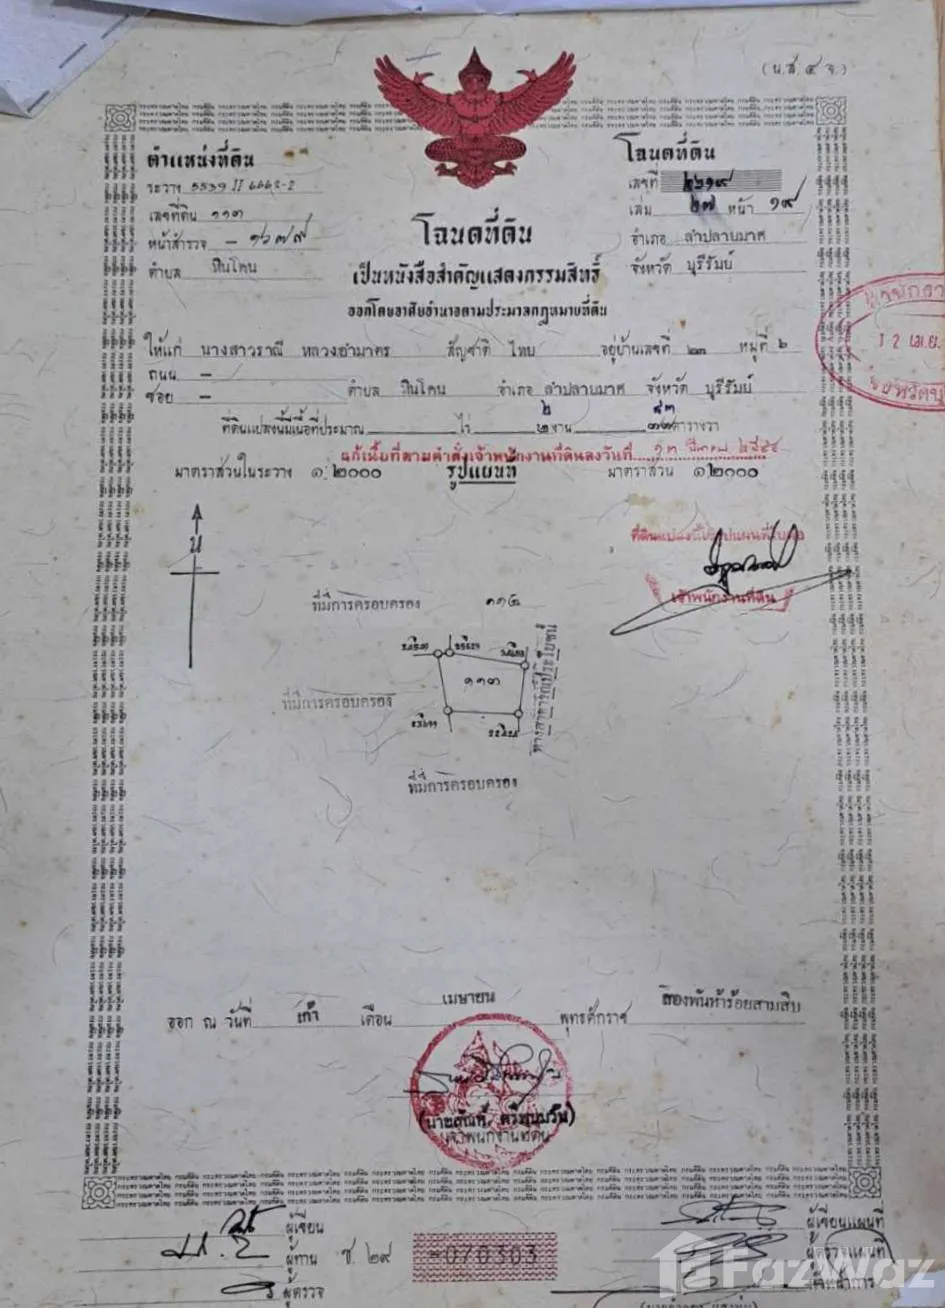 (น.ส.๔ จ.)
ตำแหน่งที่ดิน
ระวาง 5539 II 6668-2
เลขที่ดิน ๑๑๓
หน้าสำรวจ - ๑๖๗๙
ตำบล หินโคน
โฉนดที่ดิน
เลขที่ ๒๖๑๙
เล่ม ๒๗ หน้า ๑๙
อำเภอ ลำปลายมาศ
จังหวัด บุรีรัมย์
โฉนดที่ดิน
เป็นหนังสือสำคัญแสดงกรรมสิทธิ์
ออกโดยอาศัยอำนาจตามประมวลกฎหมายที่ดิน
๑ 2 เม.ย.
ให้แก่ นางสาวราณี หลวงอำมาตร สัญชาติ ไทย อยู่บ้านเลขที่ ๒๓ หมู่ที่ ๖
ถนน -
ซอย - ตำบล หินโคน อำเภอ ลำปลายมาศ จังหวัด บุรีรัมย์
๒ ๘๓
ที่ดินแปลงนี้มีเนื้อที่ประมาณ ไร่ ๒ งาน ๓๗ ตารางวา
แก้เนื้อที่ตามคำสั่งเจ้าพนักงานที่ดินลงวันที่ ๑๓
มาตราส่วนในระวาง ๑:๒๐๐๐ รูปแผนที่ มาตราส่วน ๑:๒๐๐๐
น
เจ้าพนักงานที่ดิน
ที่มีการครอบครอง ๑๑๔
๑๑๓
ที่มีการครอบครอง
ทางสาธารณประโยชน์
ที่มีการครอบครอง
ออก ณ วันที่ เก้า เดือน เมษายน พุทธศักราช สองพันห้าร้อยสามสิบ
เจ้าพนักงานที่ดิน
ผู้เขียน
ผู้ทาน
ผู้ตรวจ
ช. ๒๙
070303
ผู้เขียนแผนที่
ผู้ตรวจแผนที่
FazWaz